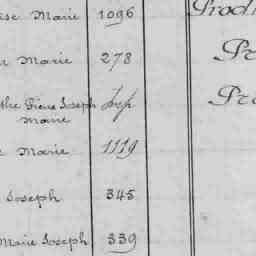 Marie 1096 Prod
Marie 278 Pr
Pierre Joseph Sup Pro
Marie
Marie 1119
Joseph 345
Marie Joseph 339